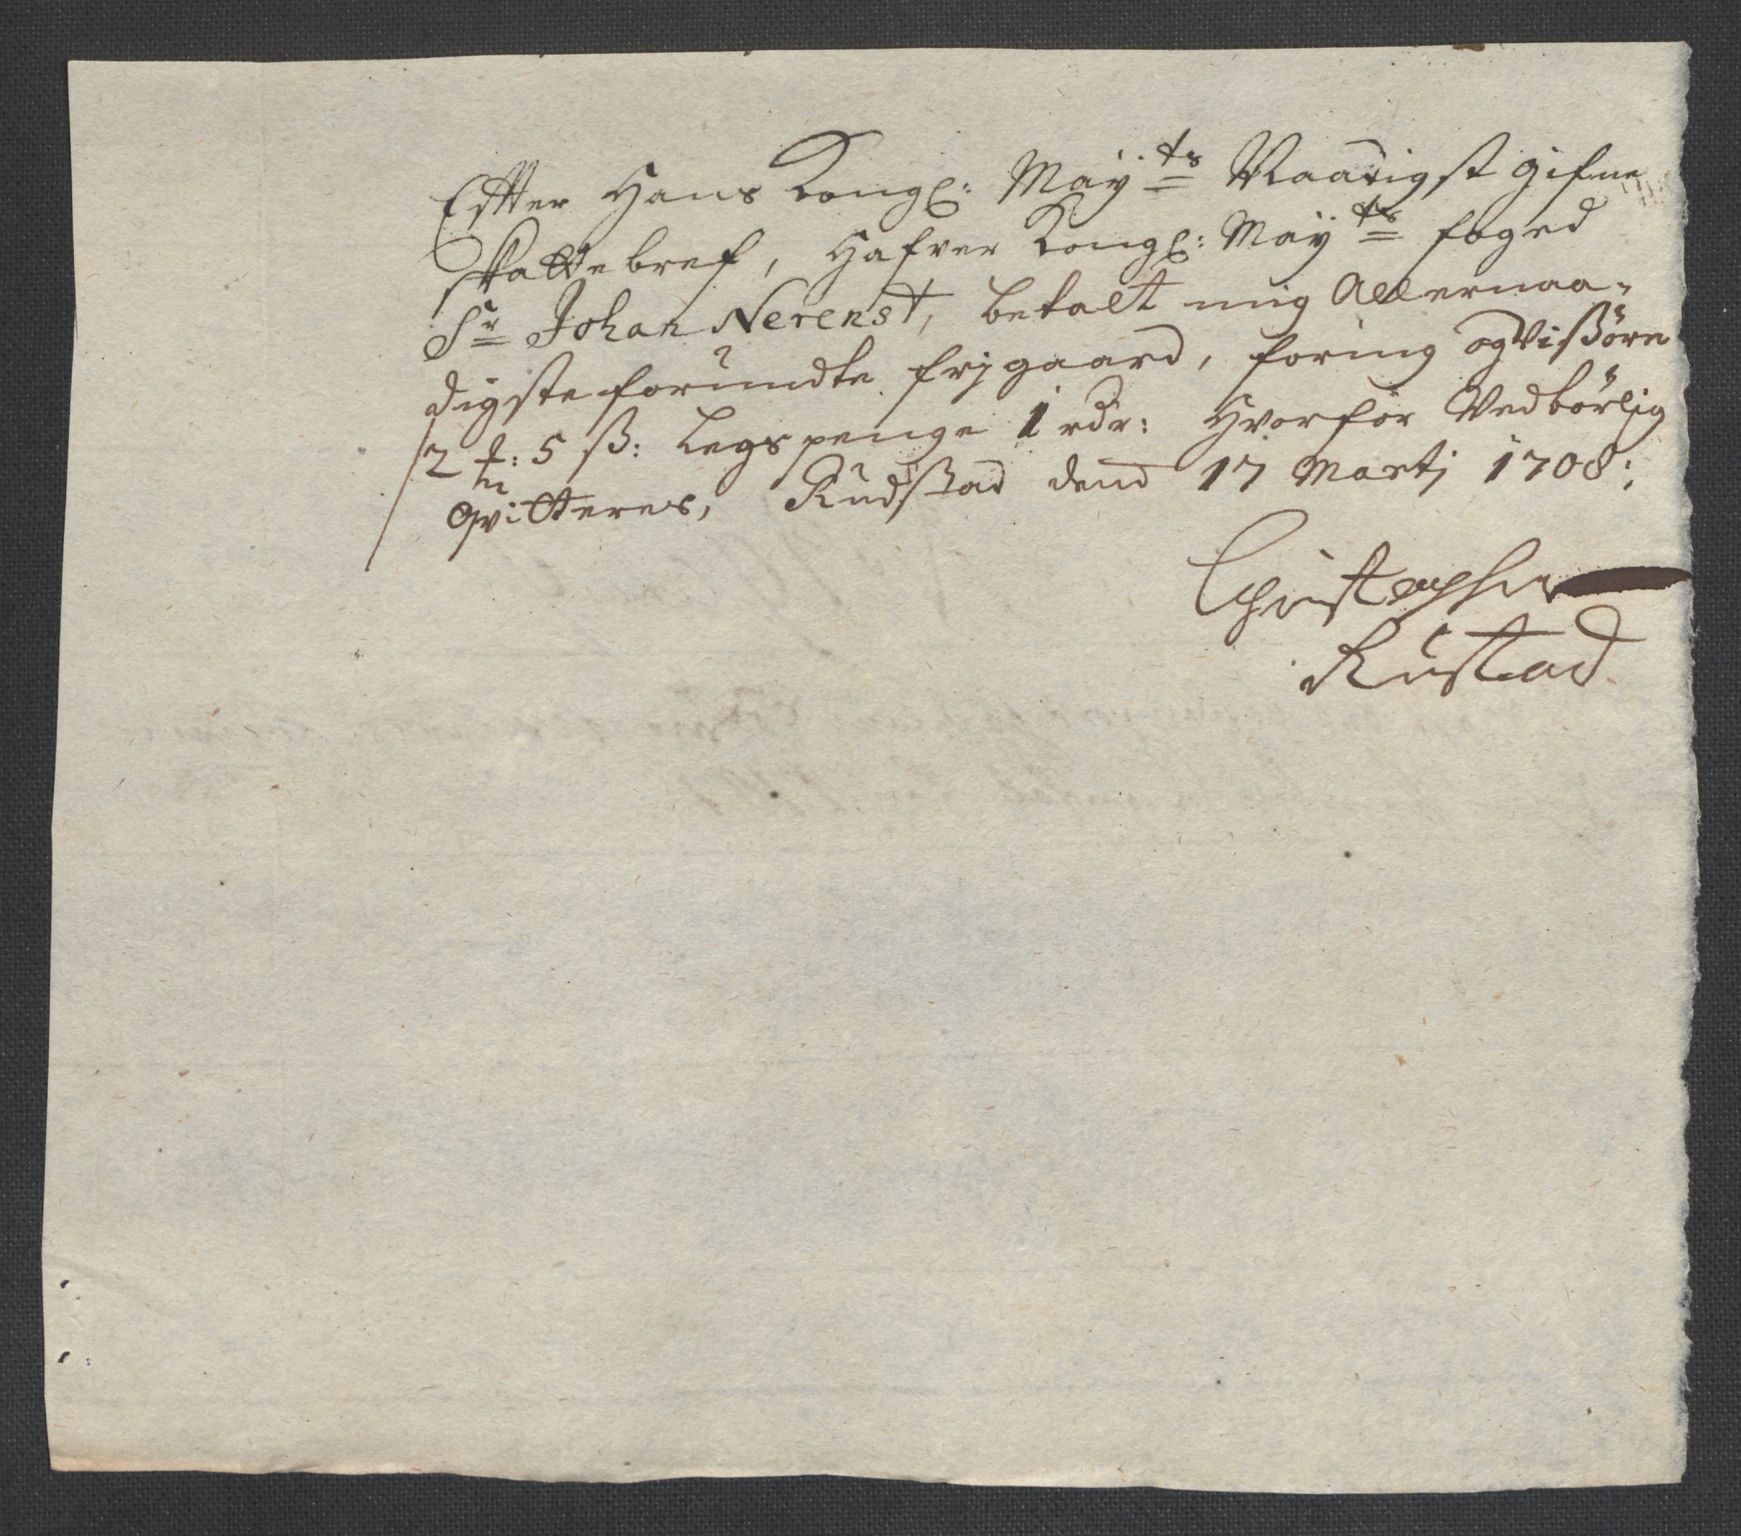 Efter Hans Kongl: May:ts Naadigst gifne
skattebref, Hafver Kongl: May:ts foged
Sr Johan Nerenst, betalt mig Allernaa-
digste forundte frjgaard, foring og Vißøre
2 : 5 ß: Legspenge 1 rdr: Hvorfor Vedbørlig
qvitteres, Rudstad dend 17 Martj 1708:
Christopher
Rustad